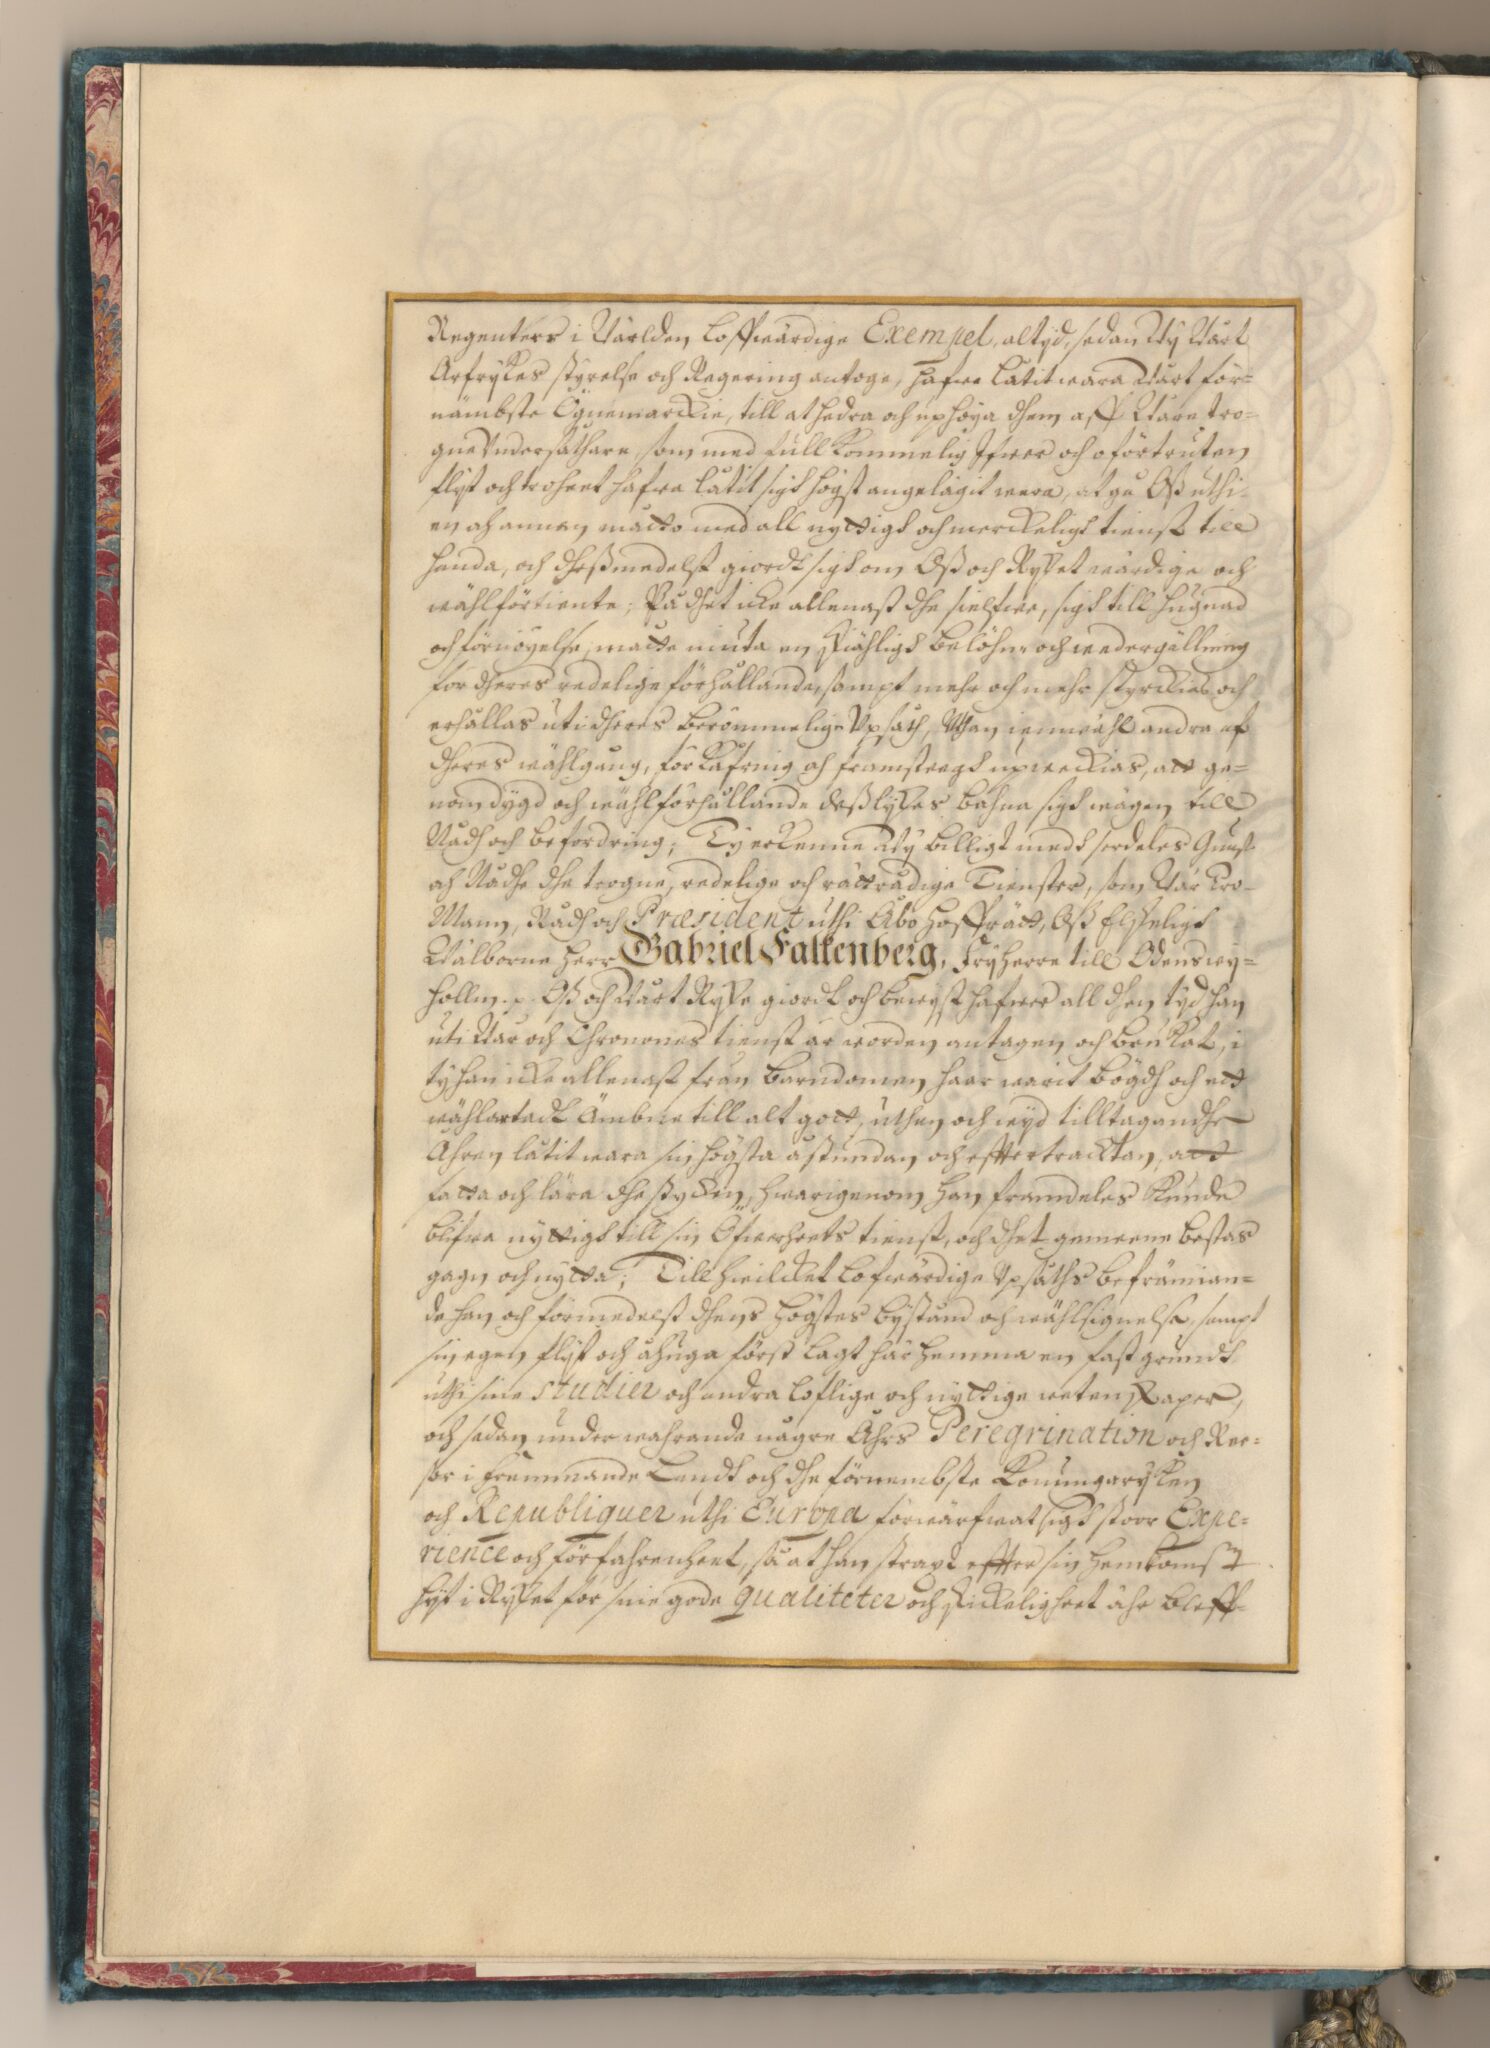 Regenters i Världen Loffwärdige Exempel, altyd, sedan Wy Wårt
Arfrykes styrelse och Regering antoge, hafwe låtit wara Wårt för=
nämbste Ögnemärckie, till at hedra och uphöya dhem aff Wåre tro=
gne Undersåthare, som med fullkommelig Ifwer och oförtruten
flyt och troheet hafwe låtit sigh högst angelägit wara, at gå Oß uthi
en och annan måtto med all nyttigh och merckeligh tienst till
handa, och dheßmedelst giordt sigh om Oß och Ryket wärdige och
wählförtiente; På dhet icke allenast dhe sielfwe, sigh till hugnad
och förnöyelse, måtte niuta en skiähligh belöhn- och wedergällning
for dheres redelige förhållande, sampt mehr och mehr styrckias och
erhållas uti dheres berömmelige Vpsåth, Utan iemwähl andra af
dheres wählgång, förkåfring och framsteegh upweckias, att ge=
nom dygd och wählförhållande deßlykes bahna sigh wägen till
Nådh och befordring; Ty erkenne Wy billigt medh serdeles Gunst
och Nådhe dhe trogne, redelige och rättrådige Tienster, som Wår Tro-
Mann, Rådh och Præsident uthi Åbo Hoffrätt, Oß Elskeligh
Wälborne Herr Gabriel Falkenberg, Fryherre till Odenswy=
hollm. p. Oß och Wårt Ryke giordt och bewyst hafwer all dhen tyd han
uti Wår och Chronones tienst är worden antagen och brukat, i
ty han icke allenast från Barndomen haar warit bögdh och ett
wählartadt Ämbne till alt gott, uthan och wyd tilltagandhe
Åhren låtit wara sin högsta åstundan och efftertracktan, att
fatta och lära dhe stycken, hwarigenom han framdeles kunde
blifwa nyttigh till sin Öfwerheets tienst, och dhet gemeene bestas
gagn och nytta; Till hwilcket lofwärdige Vpsåths befrämian=
de han och förmedelst dhens högstes bystånd och wählsignelse, sampt
sin egen flyt och åhuga först lagt här hemma en fast grundh
uthi sine studier och andra loflige och nyttige wetenskaper,
och sedan under wahrande någre Åhrs Peregrination och Ree=
sor i fremmande Landh och dhe förnembste Konungaryken
och Republiquer uthi Europa förwärfwat sigh stoor Expe=
rience och förfahrenheet, så at han straxt effter sin hemkomst
hyt i Ryket för sine gode qualiteter och skickeligheet ähr bleff=